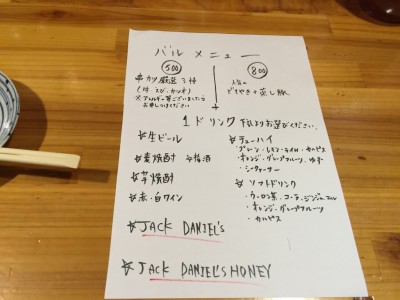 バルメニュー
500
串カツ厳選3種
※アレルギー等ございましたら
お申しつけください
800
どて焼き+蒸し豚
1ドリンク 下記よりお選びください。
☆生ビール
☆麦焼酎 ☆梅酒
☆芋焼酎
☆赤・白ワイン
☆チューハイ
・プレーン・レモン・ライム・カルピス
・オレンジ・グレープフルーツ・ゆず
・シークァーサー
☆ソフトドリンク
・ウーロン茶・コーラ・ジンジャエール
・オレンジ・グレープフルーツ
・カルピス
☆JACK DANIEL'S
☆JACK DANIEL'S HONEY